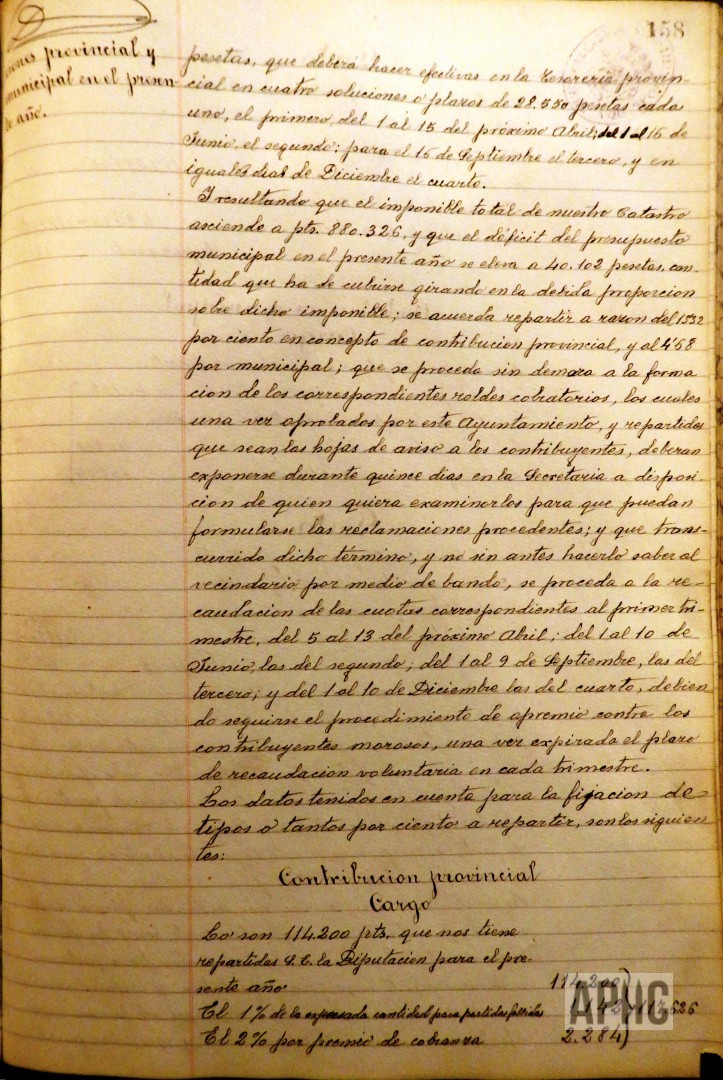 158
ciones provincial y
municipal en el presen-
te año.
pesetas, que deberá hacer efectivas en la Tesorería provin-
cial en cuatro soluciones o plazos de 28.550 pesetas cada
uno, el primero, del 1 al 15 del próximo Abril; del 1 al 16 de
Junio el segundo; para el 16 de Septiembre el tercero, y en
iguales dias de Diciembre el cuarto.
Y resultando que el imponible total de nuestro Catastro
asciende a pts. 880.326, y que el déficit del presupuesto
municipal en el presente año se eleva a 40.102 pesetas, can-
tidad que ha de cubrirse girando en la debida proporcion
sobre dicho imponible; se acuerda repartir a razon del 13'32
por ciento en concepto de contribucion provincial, y al 4'68
por municipal; que se proceda sin demora a la forma
cion de los correspondientes roldes cobratorios, los cuales
una vez aprobados por este Ayuntamiento, y repartidas
que sean las hojas de aviso a los contribuyentes, deberan
exponerse durante quince dias en la Secretaria a disposi-
cion de quien quiera examinarlos para que puedan
formularse las reclamaciones procedentes; y que trans-
currido dicho término, y no sin antes hacerlo saber al
vecindario por medio de bando, se proceda a la re-
caudacion de las cuotas correspondientes al primer tri-
mestre, del 5 al 13 del próximo Abril; del 1 al 10 de
Junio, las del segundo; del 1 al 9 de Septiembre, las del
tercero; y del 1 al 10 de Diciembre las del cuarto, debien
do seguirse el procedimiento de apremio contra los
contribuyentes morosos, una vez expirada el plazo
de recaudacion voluntaria en cada trimestre.
Los datos tenidos en cuenta para la fijacion de
tipos o tantos por ciento a repartir, son los siguien
tes:
Contribucion provincial
Cargo
Lo son 114.200 pts. que nos tiene
repartidas S.E. la Diputacion para el pre-
sente año 114.200
El 1% de la expresada cantidad para partidas fallidas
El 2% por premio de cobranza 2.284
APHG